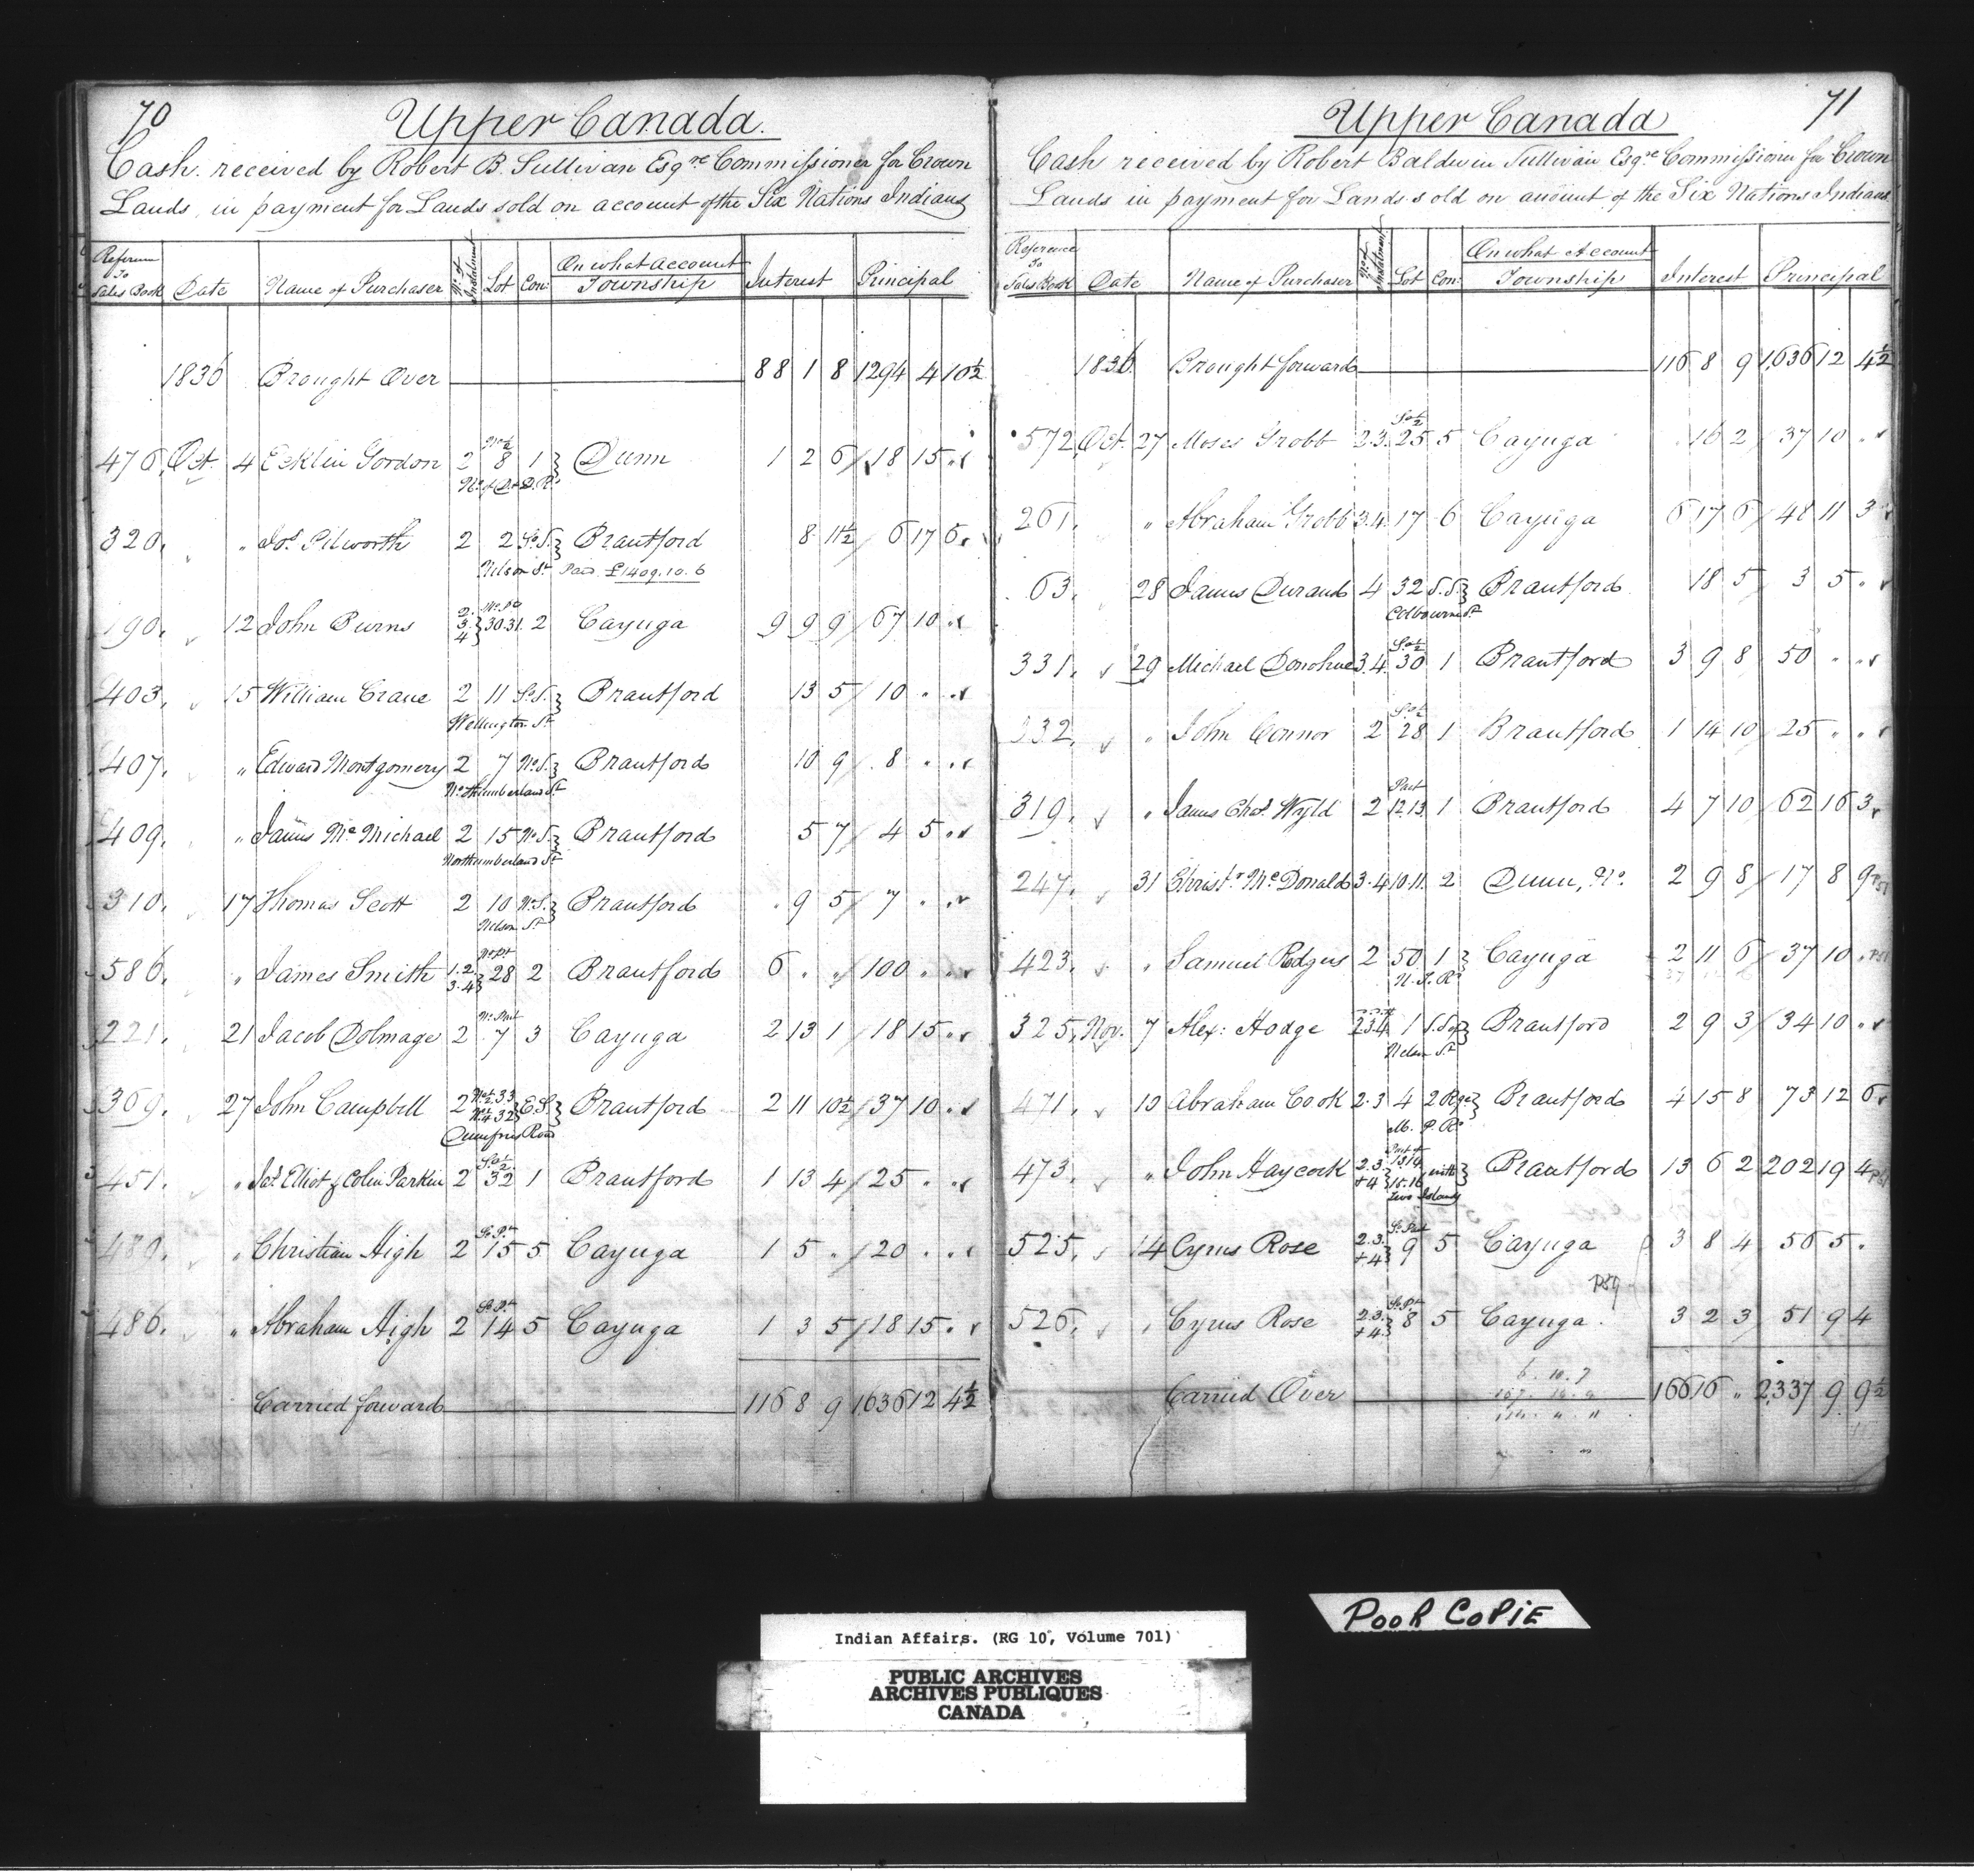 70
Upper Canada.
Cash received by Robert B. Sullivan Esqre Commissioner for Crown
Lands, in payment for Lands sold on account of the Six Nations Indians
Reference To Sales Book Date Name of Purchaser No. of Instalment Lot Con: On what Account Township Interest Principal
1836 Brought Over 88 1 8 1294 4 10½
476. Oct. 4 Ecklin Gordon 2 No ½ 8 1 } Dunn 1 2 6 / 18 15 "
320. " Jos. Pilworth 2 2 So. S. } Brantford 8 11½ / 6 17 6
Nelson St Paid £1409.10.6
190. 12 John Burns 2. 3. 4 } No. pt 30.31. 2 Cayuga 9 9 9 / 67 10 "
403. 15 William Crane 2 11 So. S. } Brantford 13 5 / 10 " "
Wellington St
407. " Edward Montgomery 2 7 No. S. } Brantford 10 9 / 8 " "
Northumberland St
409. " James McMichael 2 15 No. S. } Brantford 5 7 / 4 5 "
Northumberland St
310. 17 Thomas Scott 2 10 No. S. } Brantford 9 5 / 7 " "
Nelson St
586. " James Smith 1.2. 3.4 } No Pt 28 2 Brantford 6 " " / 100 " "
221. 21 Jacob Dolmage 2 No. Part 7 3 Cayuga 2 13 1 / 18 15 "
369. 27 John Campbell 2 33 32 } E.S. } Brantford 2 11 10½ / 37 10 "
Dumfries Road
451. " Jas. Elliot & Colin Parkin 2 So ½ 32 1 Brantford 1 13 4 / 25 " "
489. " Christian High 2 So. Pt 15 5 Cayuga 1 5 " / 20 " "
486. " Abraham High 2 So. Pt 14 5 Cayuga 1 3 5 / 18 15 "
Carried forward 116 8 9 1,636 12 4½
71
Upper Canada
Cash received by Robert Baldwin Sullivan Esqre Commissioner for Crown
Lands in payment for Lands sold on account of the Six Nations Indians
Reference To Sales Book Date Name of Purchaser No. of Instalment Lot Con: On what Account Township Interest Principal
1836 Brought forward 116 8 9 1,636 12 4½
572 Oct. 27 Moses Grobb 2.3. So ½ 25 5 Cayuga 16 2 / 37 10 "
261. " Abraham Grobb 3.4. 17 6 Cayuga 6 17 6 / 48 11 3
63. 28 James Durand 4 32 S. S. } Brantford 18 5 / 3 5 "
Colbourne St
331. 29 Michael Donohue 3.4. So ½ 30 1 Brantford 3 9 8 / 50 " "
332. " John Connor 2 So ½ 28 1 Brantford 1 14 10 / 25 " "
319. " James Chas. Wyld 2 Part 12.13 1 Brantford 4 7 10 / 62 16 3
247. 31 Christr. McDonald 3.4 10.11. 2 Dunn, 2 9 8 / 17 8 9
423. " Samuel Rodgers 2 50 1 } Cayuga 2 11 6 / 37 10 "
N. T. Rd
325. Nov. 7 Alex: Hodge 2 3 4 1 } Brantford 2 9 3 / 34 10 "
Nelson St
471. 10 Abraham Cook 2.3 4 2 Rge } Brantford 4 15 8 73 12 6
M. P. Rd
473. " John Haycock 2.3. +4 } Part of 13.14 15.16 with } Brantford 13 6 2 202 19 4
two Islands
525. 14 Cyrus Rose 2.3. +4 } So Part 9 5 Cayuga 3 8 4 56 5 "
P89
526. " Cyrus Rose 2.3. +4 } So. Pt 8 5 Cayuga 3 2 3 51 9 4
Carried Over 166 16 " 2,337 9 9½
Indian Affairs. (RG 10, Volume 701)
PUBLIC ARCHIVES
ARCHIVES PUBLIQUES
CANADA
POOR COPIE